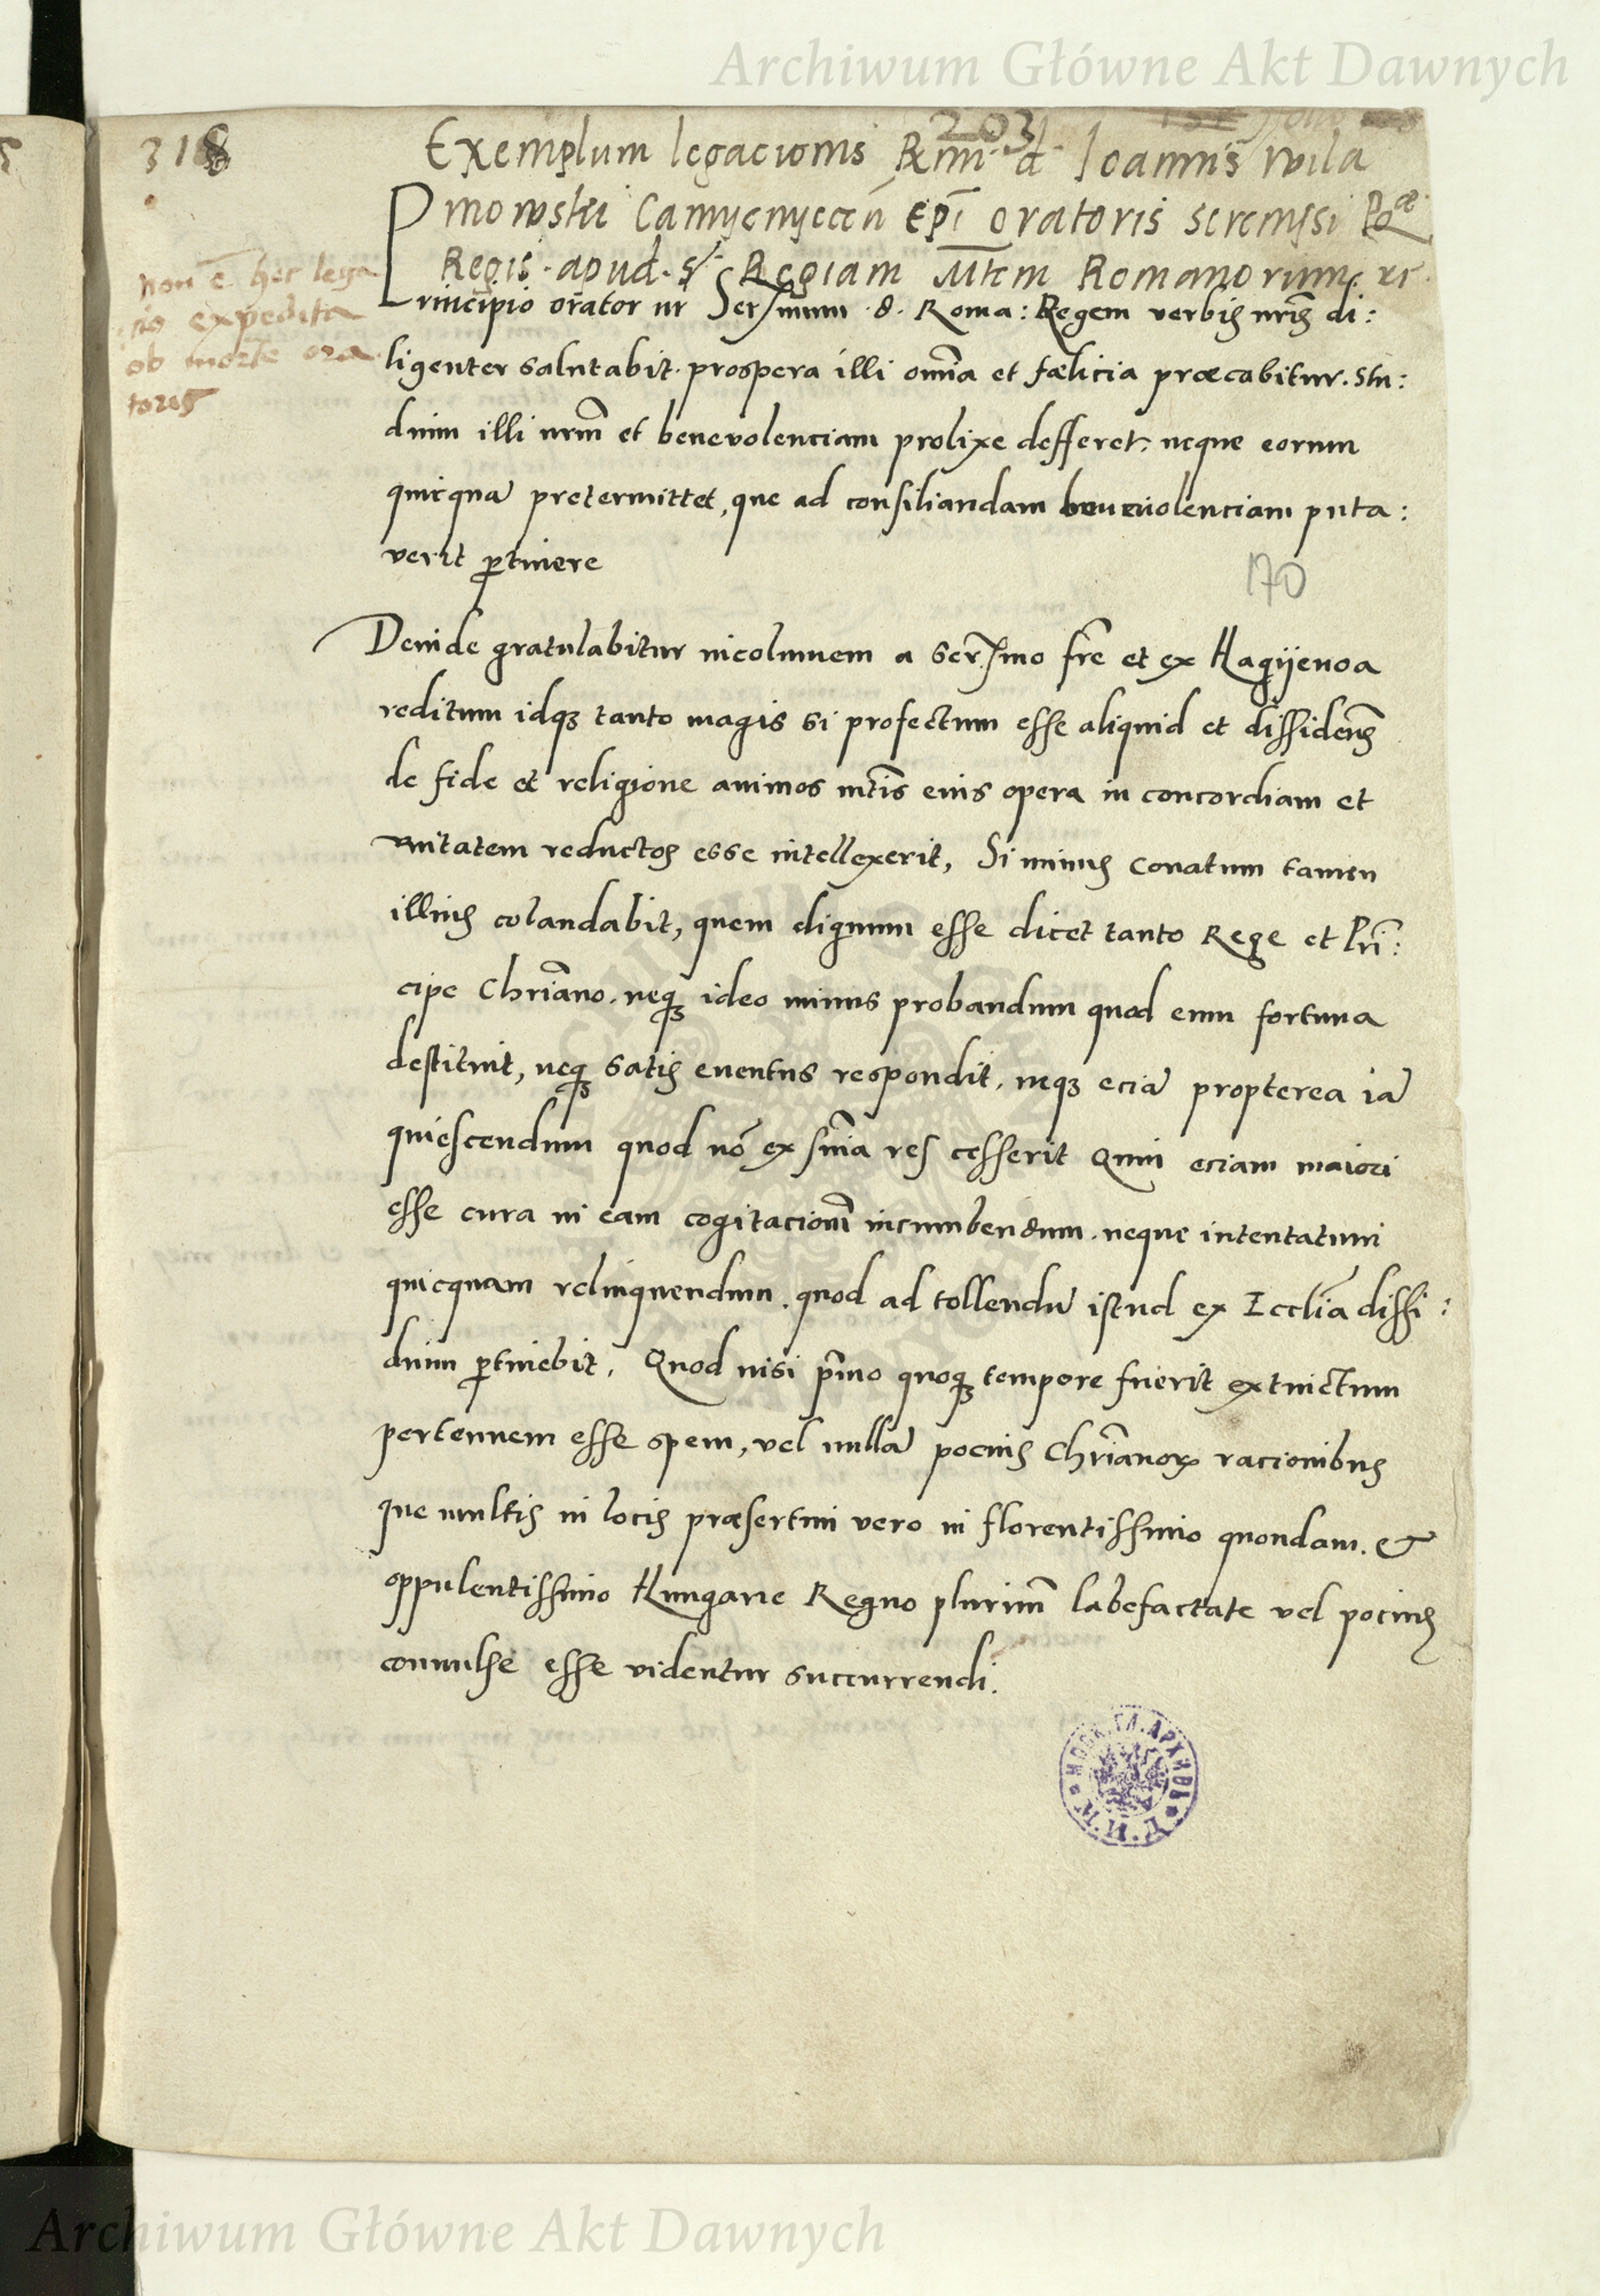 Archiwum Główne Akt Dawnych
318
203
Exemplum legacionis Rmi d Ioannis wila
mowski Camyenyeceñ Epi oratoris serenissi Poæ
Regis apud S. Regiam Mtem Romanorum rc.
non ē hec lega
tio expedita
ob mortē ora
toris
Principio orator nr Serssmum d. Roma: Regem verbis nris di:
ligenter salutabit. prospera illi omīa et fælicia præcabitur. Stu:
dium illi nrm et benevolenciam prolixe defferet. neque eorum
quicquā pretermittet, que ad consiliandam benevolenciam puta:
verit ptinere
170
Deinde gratulabitur incolumem a Serssmo fre et ex Hagyenoa
reditum idqз tanto magis si profectum esse aliquid et dissidens
de fide et religione animos mtis eius opera in concordiam et
unitatem reductos esse intellexerit, Si minus conatum tamen
illius colaudabit, quem dignum esse dicet tanto Rege et Pri:
cipe Chriano. neqз ideo minus probandum quod eum fortuna
destituit, neqз satis eventus respondit. neqз eciā propterea iā
quiescendum quod nō ex snia res cesserit Quin eciam maiori
esse cura in eam cogitacionē incumbendum. neque intentatum
quicquam relinquendum. quod ad tollendū istud ex Ecclīa dissi:
dium ptinebit. Quod nisi pīmo quoqз tempore fuerit extinctum
pertenuem esse spem, vel nullā pocius Chrianoꝝ racionibus
que multis in locis præsertim vero in florentissimo quondam. et
oppulentissimo Hungarie Regno plurimū labefactate vel pocius
convulse esse videntur succurrendi.
МОСК. ГЛ. АРХИВЪ
М.И.Д.
Archiwum Główne Akt Dawnych